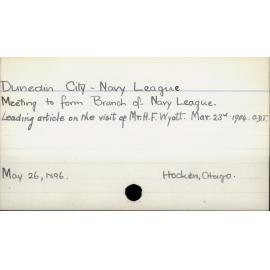 Dunedin City - Navy League
Meeting to form Branch of Navy League.
Leading article on the visit of Mr. H. F. Wyatt. Mar. 23rd 1906. O.D.T.
May 26, 1906.
Hocken, Otago.